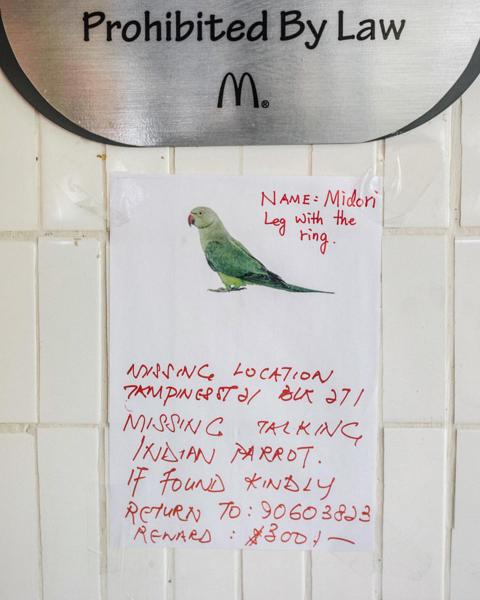 Prohibited By Law
M®
NAME: Midori
Leg with the
ring.
MISSING LOCATION
TAMPINES ST 21 BLK 271
MISSING TALKING
INDIAN PARROT.
IF FOUND KINDLY
RETURN TO: 90603823
REWARD : $300/-